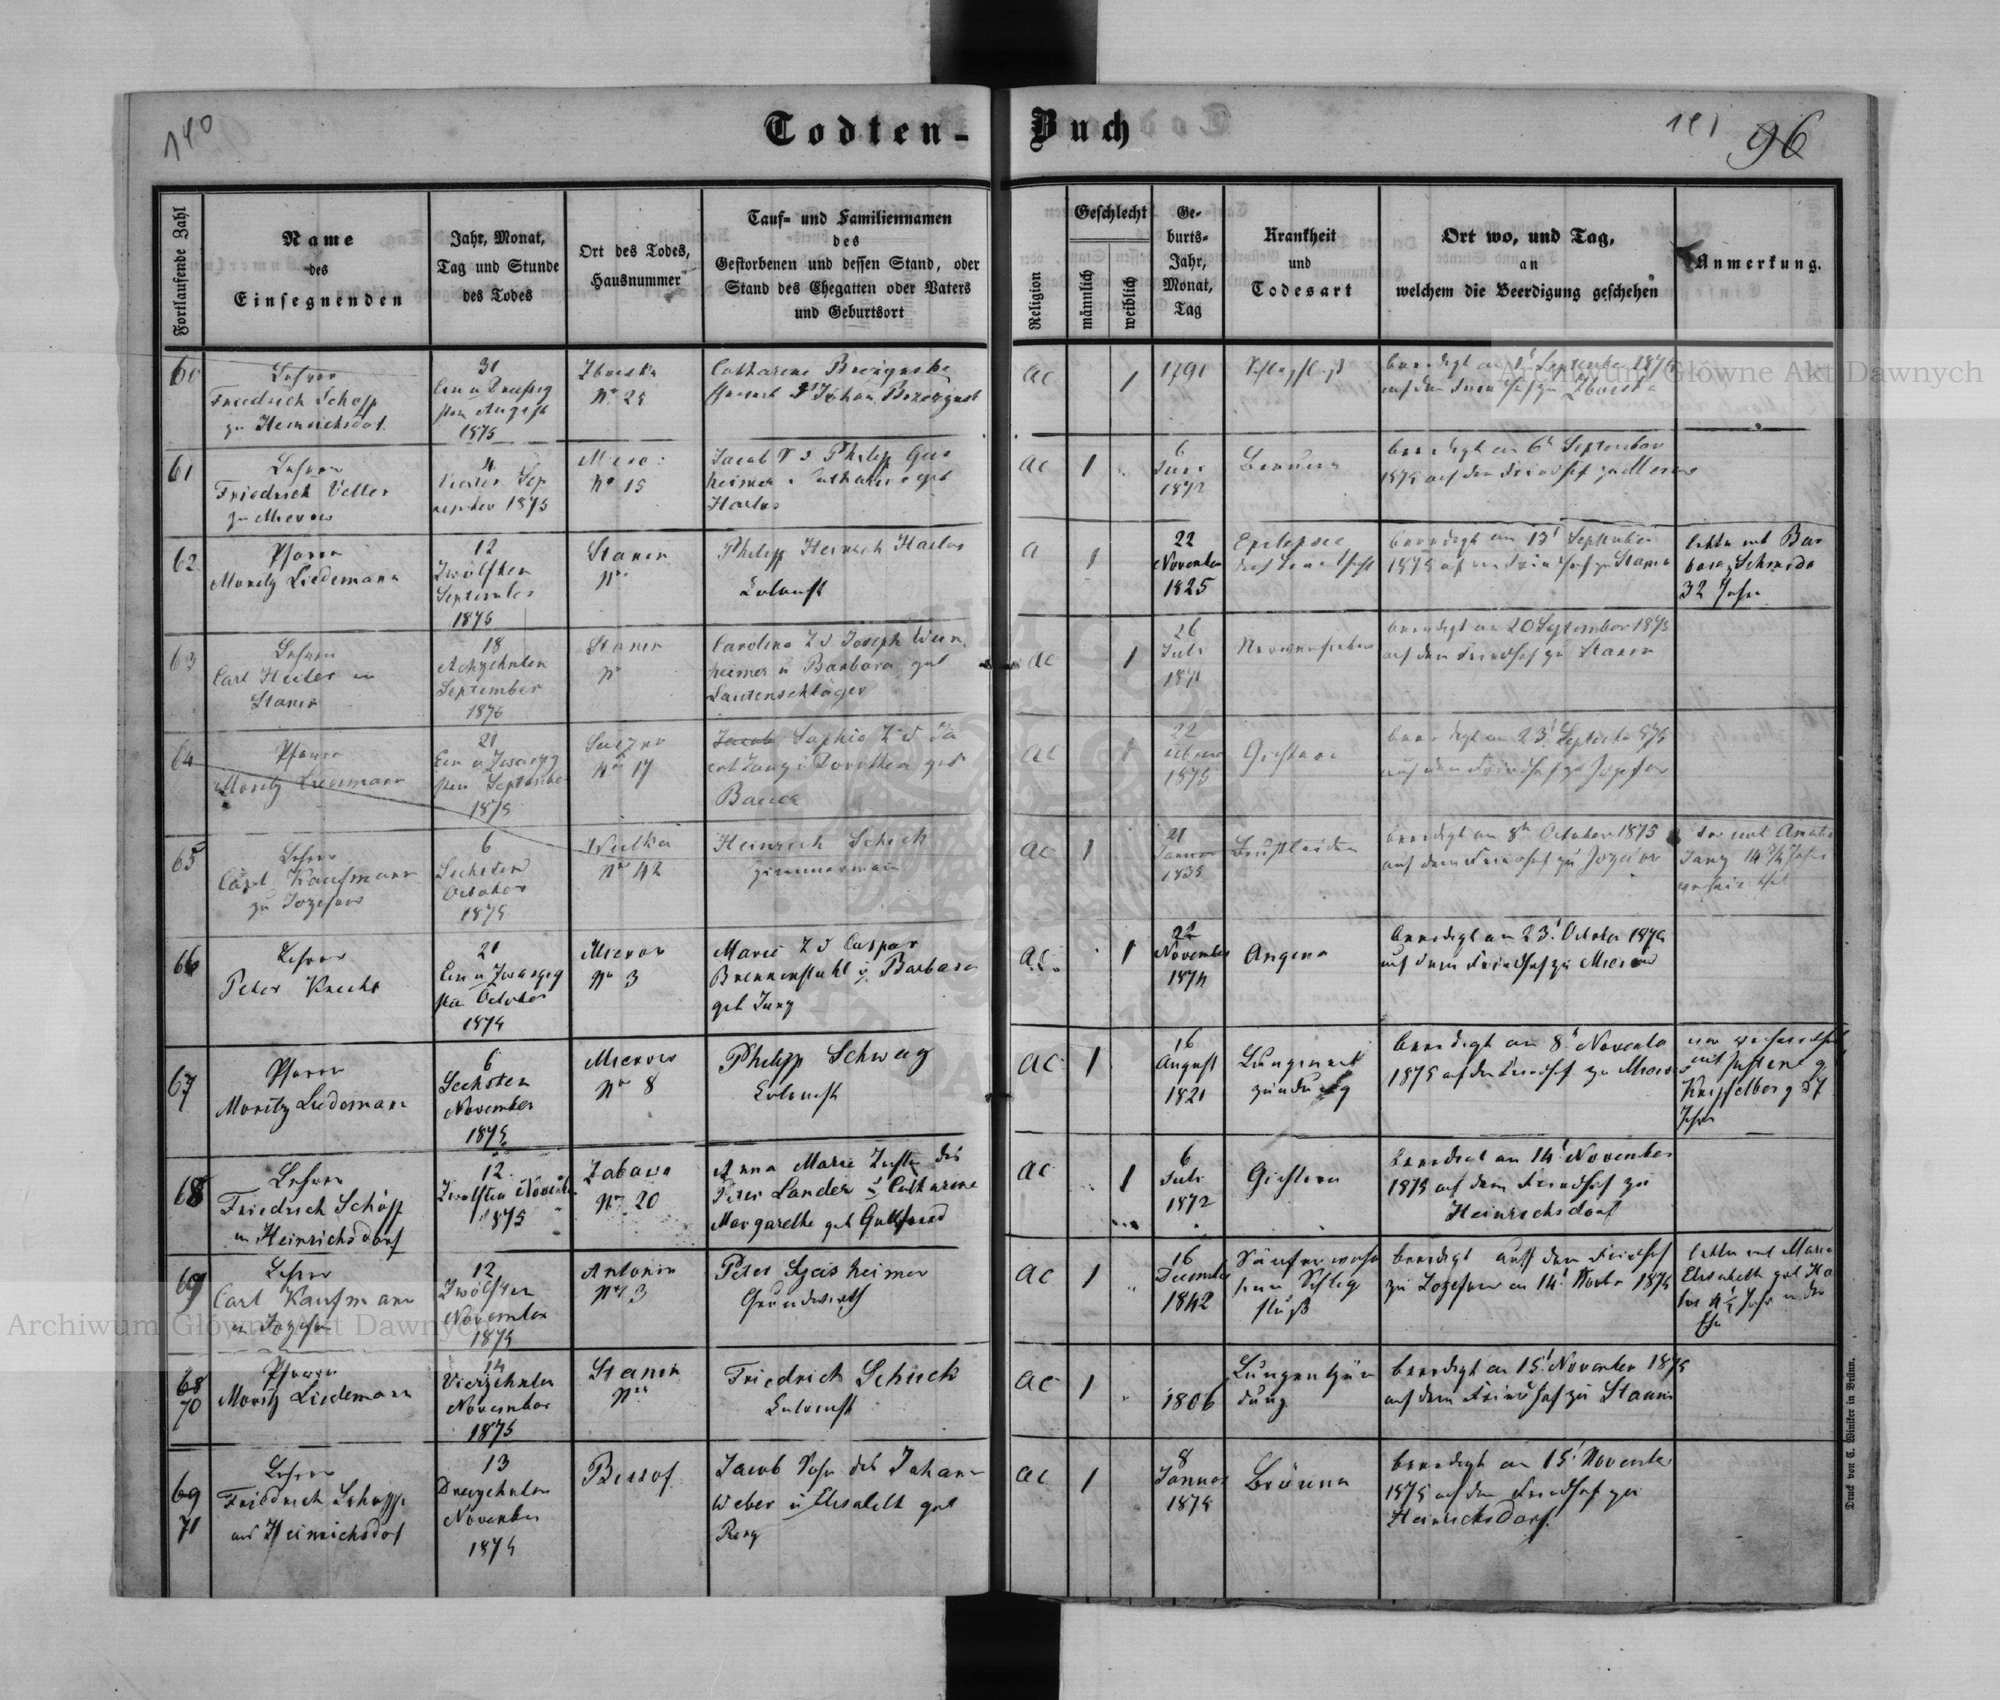 140
Todten-Buch
141
96
Fortlaufende Zahl
Name
des
Einsegnenden
Jahr, Monat,
Tag und Stunde
des Todes
Ort des Todes,
Hausnummer
Tauf- und Familiennamen
des
Gestorbenen und dessen Stand, oder
Stand des Ehegatten oder Vaters
und Geburtsort
Religion
Geschlecht
männlich
weiblich
Ge-
burts-
Jahr,
Monat,
Tag
Krankheit
und
Todesart
Ort wo, und Tag,
an
welchem die Beerdigung geschehen
Anmerkung.
60
Lehrer
Friedrich Schopp
zu Heinrichsdof
31
Ein u Dreißig
sten August
1875
No 25
Catharine
AC
1
1791
Schlagfluß
beerdigt am 1t September 1875
auf dem Friedhof zu
61
Lehrer
Friedrich Vetter
zu Mierow
4
Vierten Sep
tember 1875
No 15
Jacob S d Philipp Geis
heimer u Catharine geb
Harlos
AC
1
6
Juni
1872
Bräune
beerdigt am 6t September
1875 auf dem Friedhof zu Mierow
62
Pfarrer
Moritz Liedemann
12
Zwölften
September
1875
Stanin
No
Philipp Heinrich Harlos
Colonist
A
1
22
November
1825
Epilepsie
beerdigt am 13t September
1875 auf dem Friedhof zu Stanin
lebte mit Bar
bara Schmidt
32 Jahre
63
Lehrer
Carl Heiler in
Stanin
18
Achzehnten
September
1875
Stanin
No
Caroline T d Joseph Wein
heimer u Barbara geb
Lautenschläger
AC
1
26
Juli
1871
Nervenfieber
beerdigt am 20 September 1875
auf dem Friedhof zu Stanin
64
Pfarrer
Moritz Liedemann
21
Ein u Zwanzig
sten September
1875
No 17
Jacob Sophie T d Ja
cob Jung u Dorothea geb
Bauer
AC
1
22
1875
beerdigt am 23t September 875
auf dem Friedhof zu Jozefow
65
Lehrer
Carl Kaufmann
zu Jozefow
6
Sechsten
October
1875
Wulka
No 42
Heinrich Schick
Zimmermann
AC
1
21
Januar
1835
Brustleiden
beerdigt am 8t October 1875
auf dem Friedhof zu Jozefow
Jung 14 3/4 Jahre
66
Lehrer
Peter Knecht
21
Ein u Zwanzig
sten October
1875
Mierow
No 3
Marie T d Caspar
Brennenstuhl u Barbara
geb Jung
AC
1
22
November
1874
Angena
beerdigt am 23t October 1875
auf dem Friedhof zu Mierow
67
Pfarrer
Moritz Liedemann
6
Sechsten
November
1875
Mierow
No 8
Philipp Schwag
Colonist
AC
1
16
August
1821
Lungenent
zündung
beerdigt am 8t November
1875 auf dem Friedhof zu Mierow
mit Justine g
37
Jahre
68
Lehrer
Friedrich Schöpp
in Heinrichsdorf
12
Zwölften November
1875
Zabawa
No 20
Anna Marie Tochter des
Peter Lander u Catharine
Margarethe geb Gottfried
AC
1
6
Juli
1872
beerdigt am 14t November
1875 auf dem Friedhof zu
Heinrichsdorf
69
Lehrer
Carl Kaufmann
in Jozefow
12
Zwölften
November
1875
Antonin
No 3
Peter Geisheimer
Grundwirth
AC
1
16
December
1842
Säuferwahn
sinn Schlag
fluß
beerdigt auf dem Friedhof
zu Jozefow am 14t Novbr 1875
lebte mit Marie
Elisabeth geb Ha
los 4 1/2 Jahr in der
Ehe
68
70
Pfarrer
Moritz Liedemann
14
Vierzehnten
November
1875
Stanin
No
Friedrich Schick
Colonist
AC
1
1806
Lungentzün
dung
beerdigt am 15t November 1875
auf dem Friedhof zu Stanin
69
71
Lehrer
Friedrich Schopp
aus Heinrichsdof
13
Dreizehnten
November
1875
Jacob Sohn des Johann
Weber u Elisabeth geb
AC
1
8
Januar
1875
Bräune
beerdigt am 15t November
1875 auf dem Friedhof zu
Heinrichsdorf.
Druck von C. Winiker in Brünn.
Archiwum Główne Akt Dawnych
Archiwum Główne Akt Dawnych